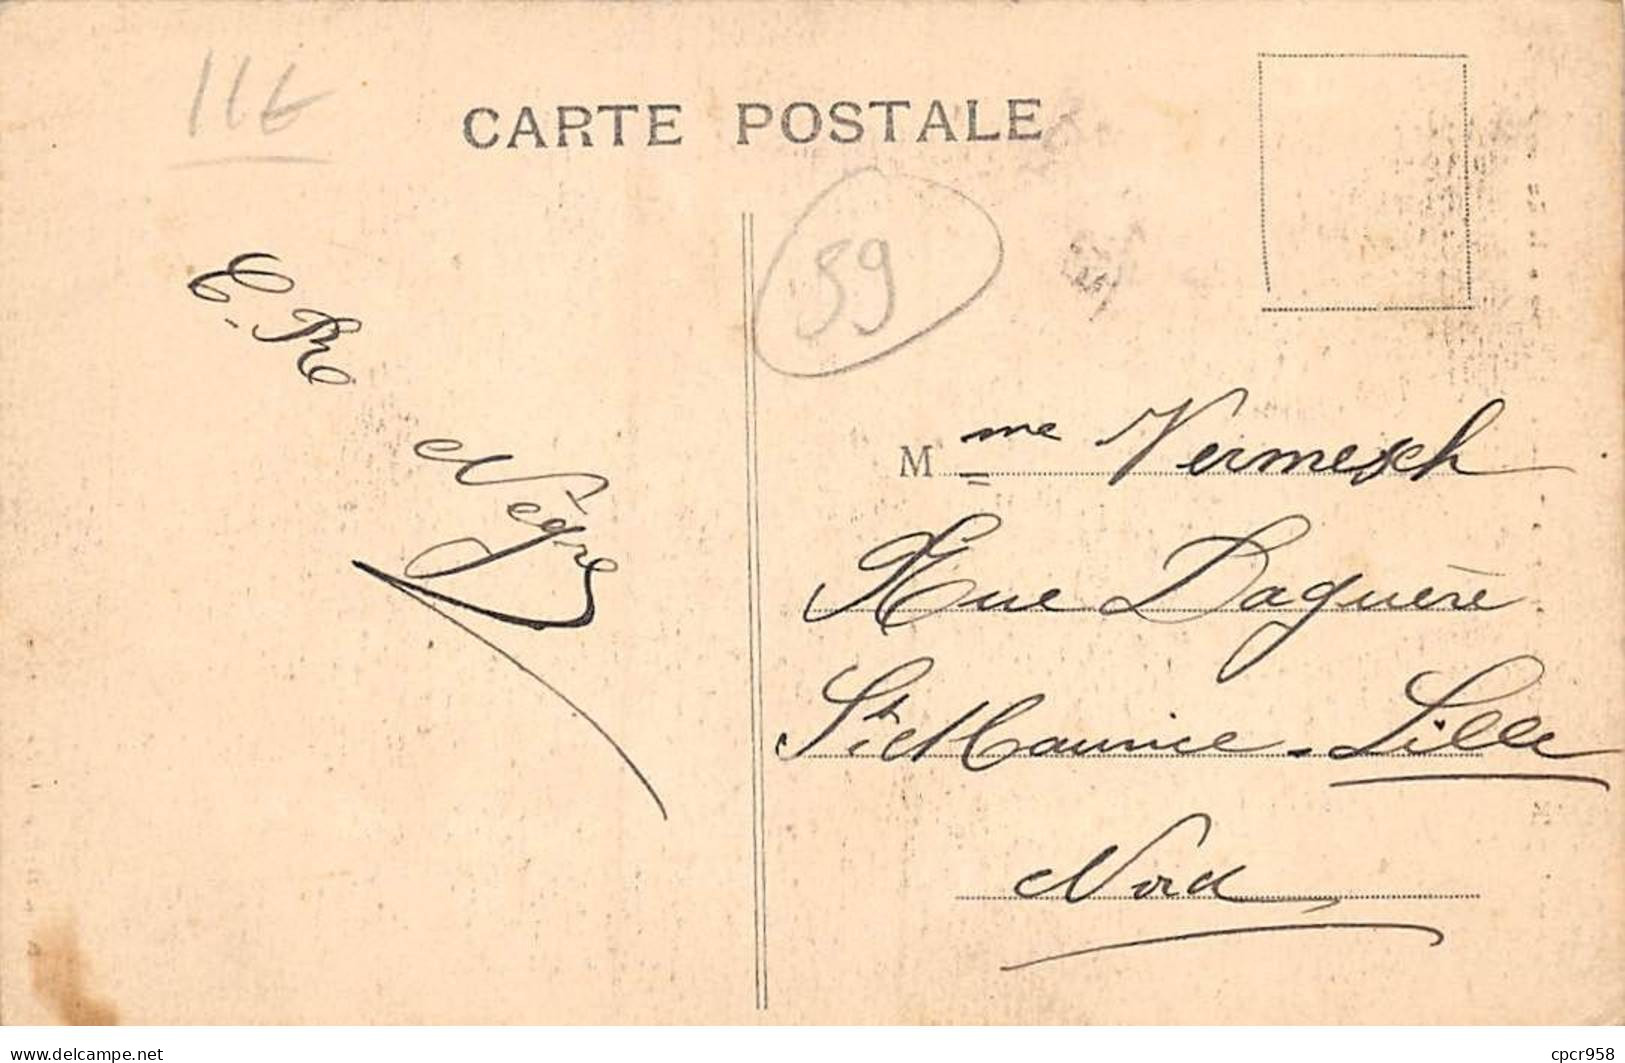 11E
CARTE POSTALE
59
C. Th
Nègre
Mme Vermesch
Rue Daguère
St Maurice - Lille
Nord
delcampe.net
cpcr958